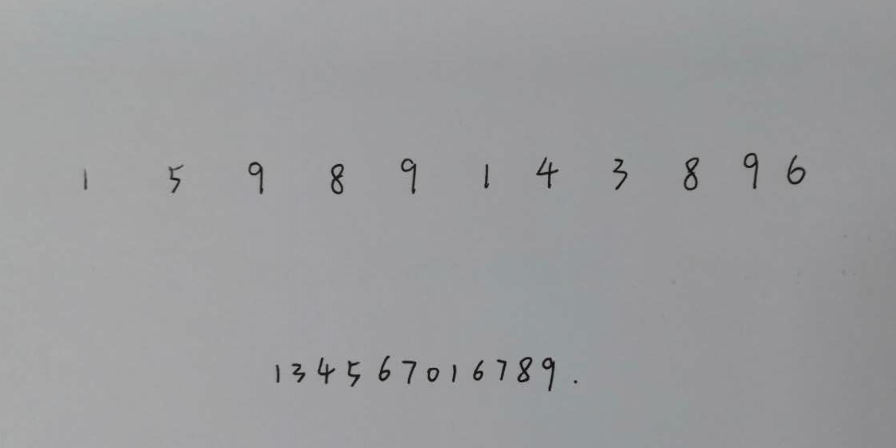 1 5 9 8 9 1 4 3 8 9 6
134567016789.